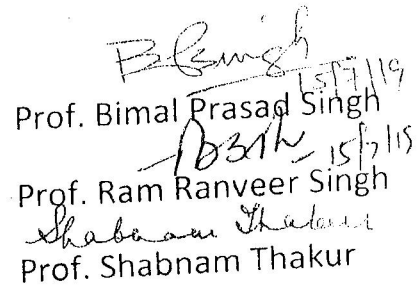 B Singh
15/7/19
Prof. Bimal Prasad Singh
15/7/19
Prof. Ram Ranveer Singh
Shabnam Thakur
Prof. Shabnam Thakur